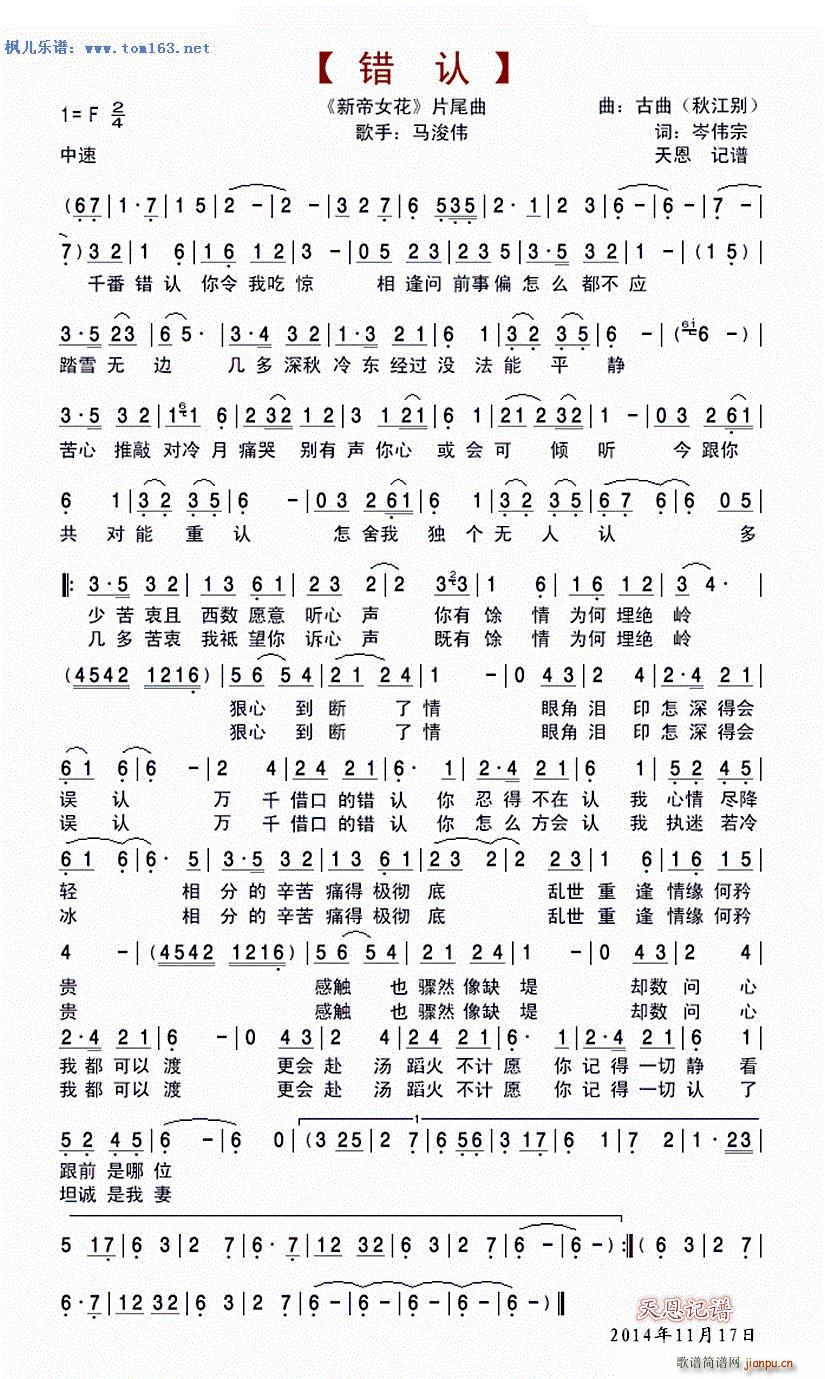 枫儿乐谱：www.tom163.net
【 错 认 】
1= F 2/4
《新帝女花》片尾曲
曲：古曲（秋江别）
歌手：马浚伟
词：岑伟宗
中速
天恩 记谱
(67|1·7|1 5|2 -|2 -|3 27|6 535|2· 1|2 3|6 -|6 -|7 -|
7)3 2|1 6|16 12|3 -|05 23|5 23|3·5 32|1 -|(15)|
千番 错 认 你令 我吃 惊 相 逢问 前事 偏 怎么 都不 应
3·5 23|65·|3·4 32|1·3 21|6 1|32 35|6 -|(6i6 -)|
踏雪 无 边 几多 深秋 冷东 经过 没 法 能 平 静
3·5 32|161 6|2 32|12 3|3 121|6 1|2123 232|1 -|03 261|
苦心 推敲 对冷 月 痛哭 别有 声 你心 或 会 可 倾 听 今 跟你
6 1|32 35|6 -|03 261|6 1|32 35|67 6|6 05|
共 对 能 重 认 怎 舍我 独 个 无 人 认 多
|:3·5 32|13 61|23 2|2 323|1 6|16 12|3 4·|
少 苦 衷且 西数 愿意 听心 声 你有 馀 情 为何 埋绝 岭
几 多 苦衷 我祗 望你 诉心 声 既有 馀 情 为何 埋绝 岭
(4542 1216)|56 54|21 24|1 -|0 43|2 4|2·4 21|
狠心 到 断 了 情 眼角 泪 印 怎 深 得会
狠心 到 断 了 情 眼角 泪 印 怎 深 得会
61 6|6 -|2 4|24 21|6· 1|2·4 21|6 1|52 45|
误 认 万 千 借口 的错 认 你 忍 得 不在 认 我 心情 尽降
误 认 万 千 借口 的错 认 你 怎 么 方会 认 我 执迷 若冷
61 6|6· 5|3·5 32|13 61|23 2|2 23|1 6|16 15|
轻 相 分 的 辛苦 痛得 极彻 底 乱世 重 逢 情缘 何矜
冰 相 分 的 辛苦 痛得 极彻 底 乱世 重 逢 情缘 何矜
4 -|(4542 1216)|56 54|21 24|1 -|0 43|2 4|
贵 感触 也 骤然 像缺 堤 却数 问 心
贵 感触 也 骤然 像缺 堤 却数 问 心
2·4 21|6 -|0 43|2 4|24 21|6· 1|2·4 21|6 1|
我 都 可以 渡 更会 赴 汤 蹈火 不计 愿 你 记 得 一切 静 看
我 都 可以 渡 更会 赴 汤 蹈火 不计 愿 你 记 得 一切 认 了
52 45|6 -|6 0|(3 25|2 7|6 56|3 17|6 1|7 2|1·23|
1
跟前 是哪 位
坦诚 是我 妻
5 17|6 3|2 7|6·7|12 32|6 3|2 7|6 -|6 -):|(6 3|2 7|
6·7|12 32|6 3|2 7|6 -|6 -|6 -|6 -)‖
天恩记谱
2014年11月17日
歌谱简谱网
jianpu.cn